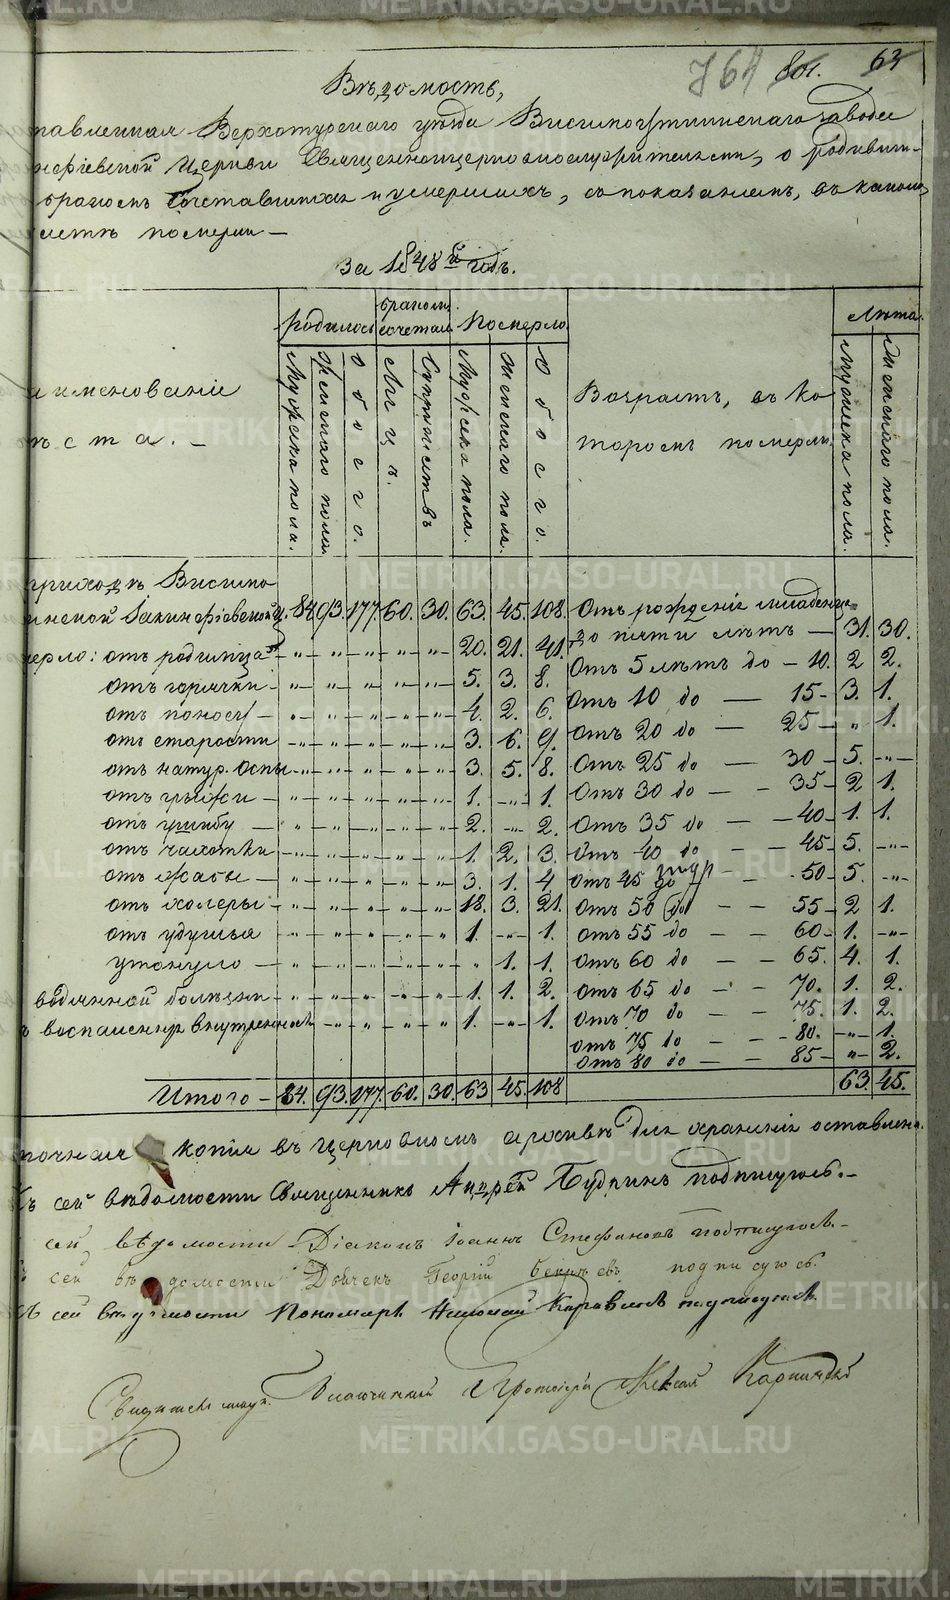 764 801. 63
Вѣдомость,
тавленная Верхотурскаго уѣзда Висимоуткинскаго завода
нѳіевской Церкви Священноцерковнослужителями, о родивших
бракомъ сочетавшихся и умершихъ, съ показаніемъ, въ каком
лѣтѣ померли —
За 1848й годъ.
аименованіе
мѣста. —
родилось
бракомъ сочетал.
Померло
Лѣта.
Мужска пола.
Женскаго пола.
Обоего.
Лицъ.
Супружествъ
Мужска пола.
Женскаго пола.
Обоего.
Возрастъ, въ ко
торомъ померли
Мужска пола.
Женскаго пола.
приходѣ Висимо
инской Іакинѳіевской ц. 84. 93. 177. 60. 30. 63. 45. 108. Отъ рожденія младенца
до пяти лѣтъ — 31. 30.
мерло: отъ родимца — „ — „ — „ — „ — „ — 20. 21. 41.
Отъ 5 лѣтъ до — 10. 2 2.
отъ горячки — „ — „ — „ — „ — „ — 5. 3. 8.
Отъ 10 до — 15 — 3. 1.
отъ поносу — „ — „ — „ — „ — „ — 4. 2. 6.
Отъ 20 до — 25 — „ 1.
отъ старости — „ — „ — „ — „ — „ — 3. 6. 9.
Отъ 25 до — 30 — 5. — „ —
отъ натур. оспы — „ — „ — „ — „ — „ — 3. 5. 8.
Отъ 30 до — 35 — 2 1.
отъ грыжи — „ — „ — „ — „ — „ — 1. — „ — 1.
Отъ 35 до — 40 — 1. 1.
отъ ушибу — „ — „ — „ — „ — „ — 2. — „ — 2.
Отъ 40 до — 45 — 5. — „ —
отъ чахотки — „ — „ — „ — „ — „ — 1. 2. 3.
Отъ 45 до — 50 — 5. — „ —
отъ жабы — „ — „ — „ — „ — „ — 3. 1. 4
Отъ 50 до — 55 — 2 1.
отъ холеры — „ — „ — „ — „ — „ — 18. 3. 21.
Отъ 55 до — 60 — 1. — „ —
отъ удушья — „ — „ — „ — „ — „ — 1. — „ — 1.
Отъ 60 до — 65. 4. 1.
утонуло — „ — „ — „ — „ — „ — „ 1. 1.
Отъ 65 до — 70. 1. 2.
водянной болѣзни — „ — „ — „ — „ — „ — 1. 1. 2.
Отъ 70 до — 75. 1. 2.
ъ воспаленія внутренност — „ — „ — „ — „ — 1. — „ — 1.
Отъ 75 до — 80. — „ — 1.
Отъ 80 до — 85 — „ — 2.
Итого — 84. 93. 177. 60. 30. 63 45. 108 63. 45.
точная копія въ церковномъ архивѣ для храненія оставлена.
Къ сей вѣдомости Священникъ Андрей Будринъ подписуюсь. —
сей вѣдомости Діаконъ Іоаннъ Стефановъ подписуюсь. —
сей вѣдомости Дьячекъ Георгій подписуюсь.
Къ сей вѣдомости Пономарь Николай подписуюсь.
Благочинный Протоіерей Алексій Карпинскій
METRIKI.GASO-URAL.RU